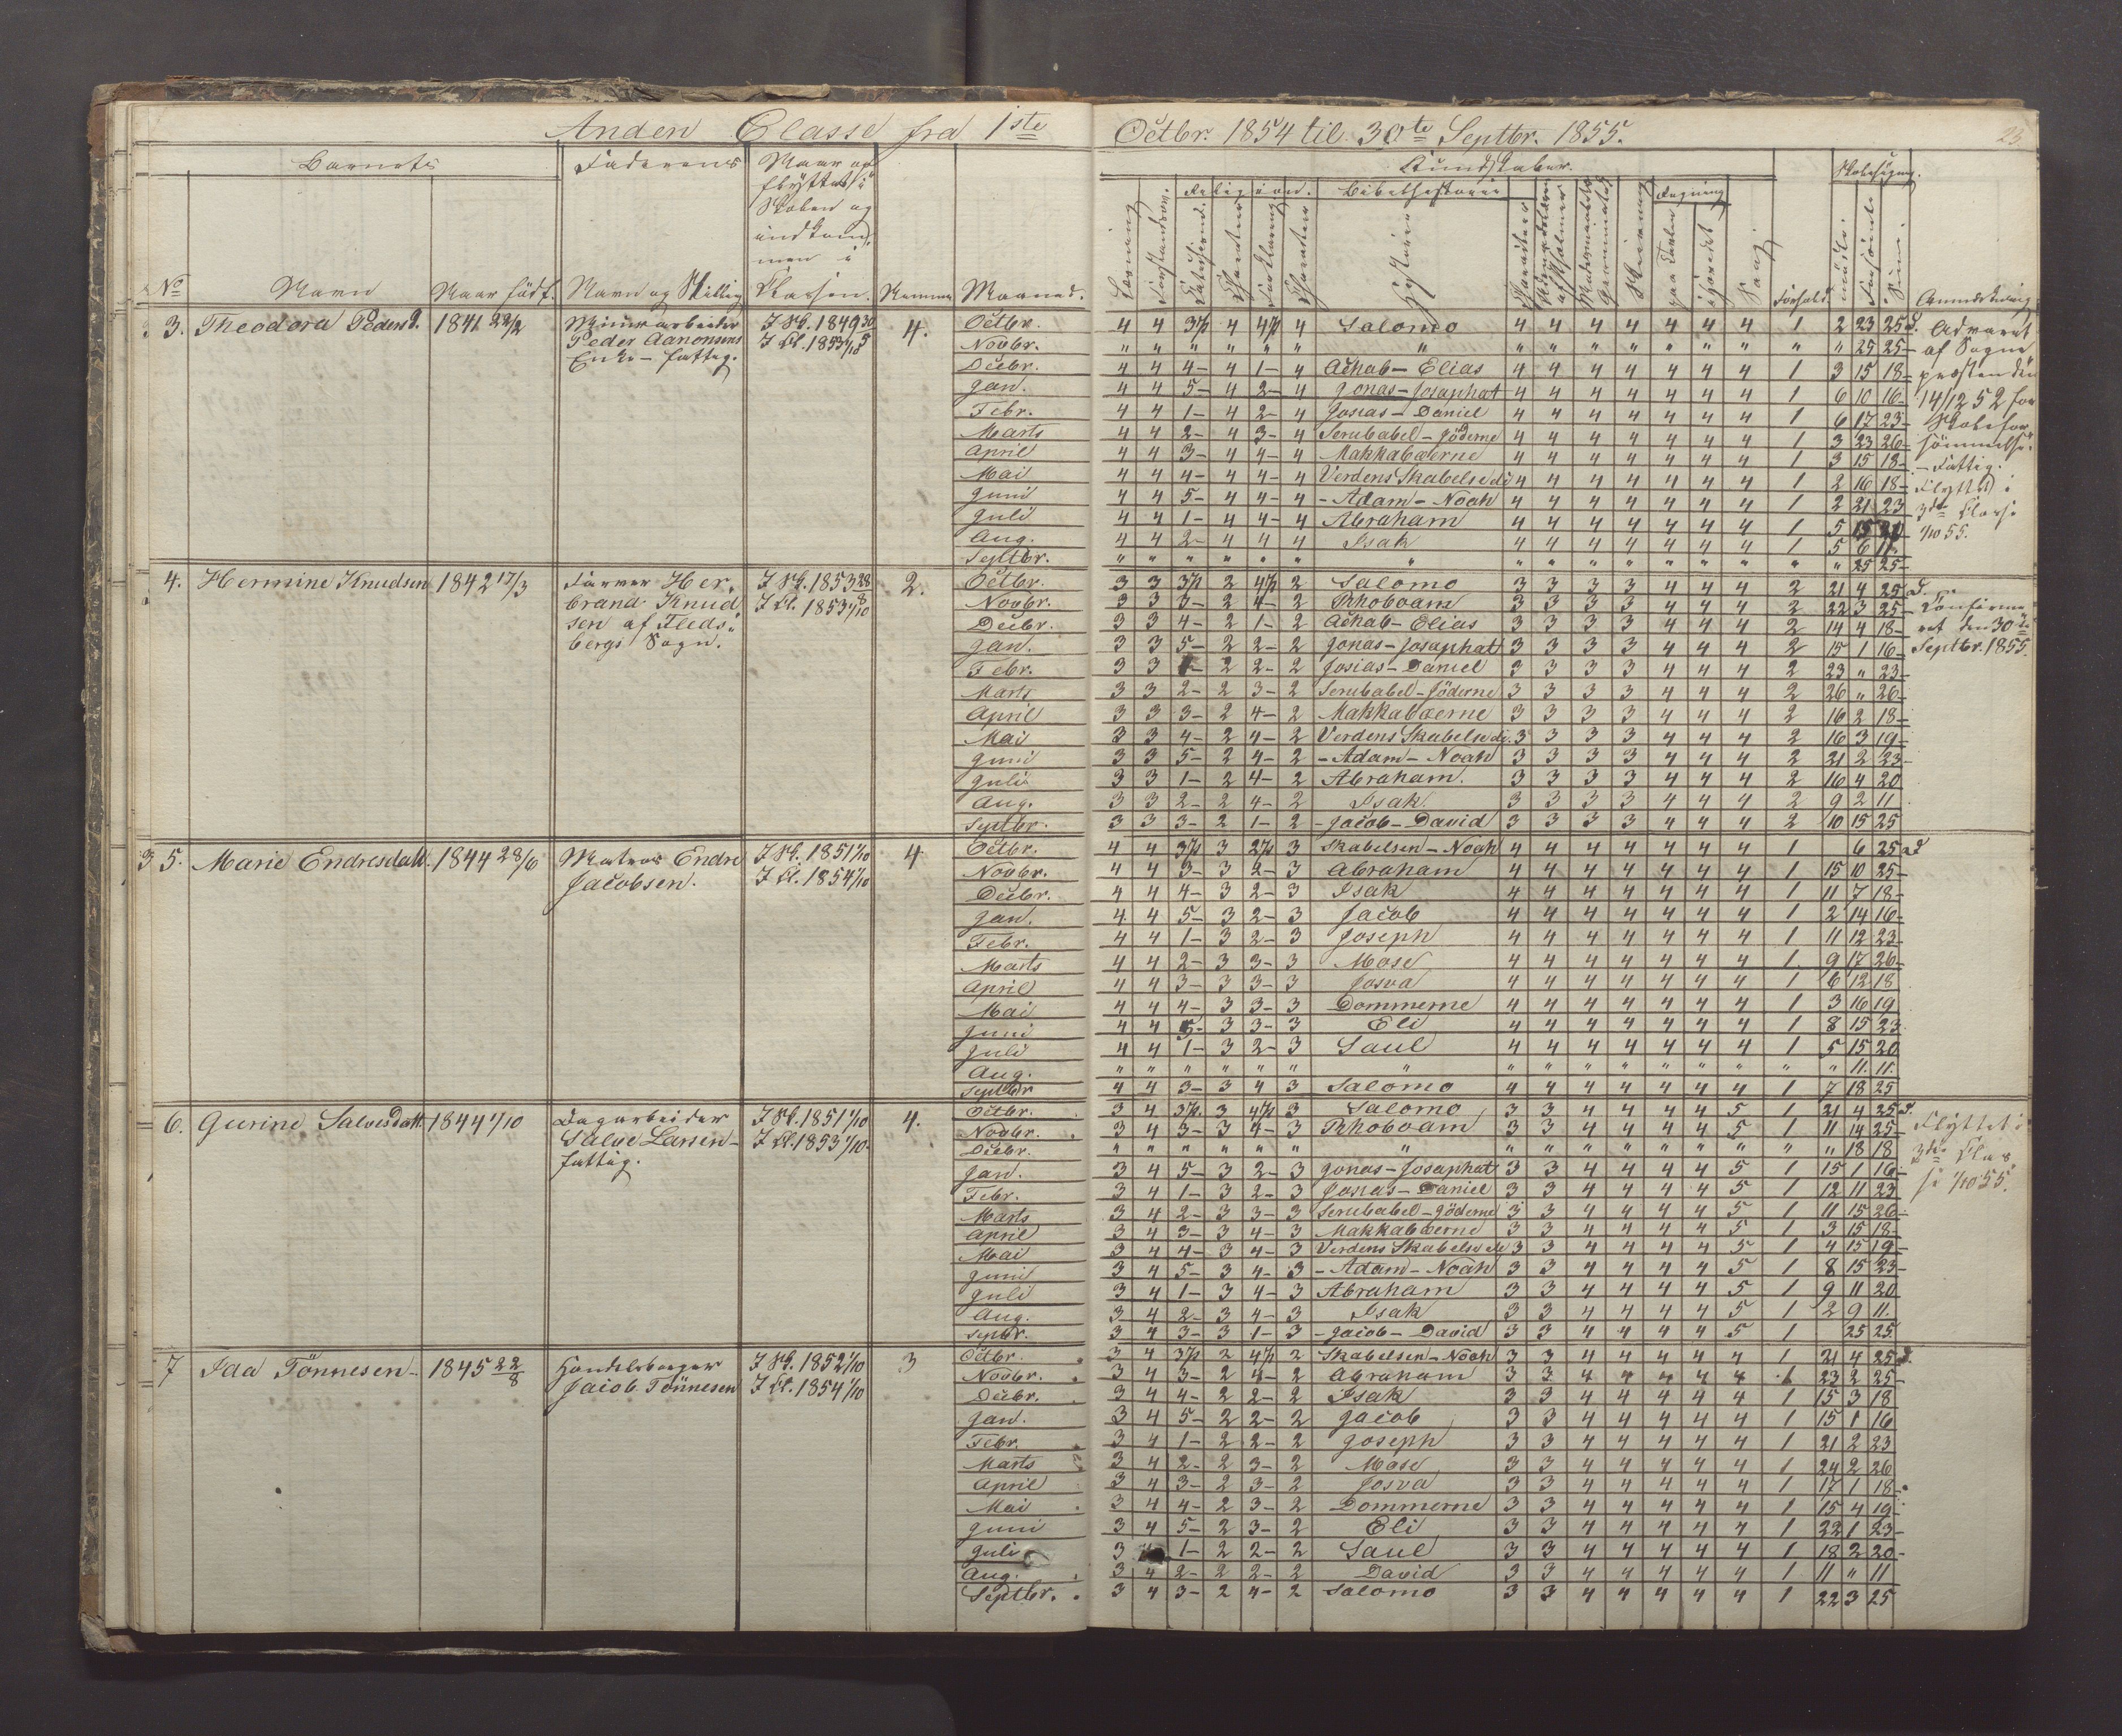 Anden Classe fra 1ste Octbr. 1854 til 30te Septbr. 1855.
23
Barnets Faderens Naar op
flyttet i
Skolen og
indkom
men i
Kundskaber. Skolesøgning.
Religion. Bibelhistorie Regning
No Navn Naar født. Navn og Stilling Classen. Nummer Maaned. Forhold. Anmærkning
3. Theodora Pedersd. 1841 22/2 Minearbeider I Sk. 1849 30/5 4. Octbr. 4 4 3½ 4 4½ 4 Salomo 4 4 4 4 4 4 4 1 2 23 25 d. Advaret
Peder Aanonsens I Cl. 1853 1/10 Novbr. " " " " " " " " " " " " " " " " 25 25 – af Sogne
Enke – fattig. Decbr. 4 4 4– 4 1– 4 Achab – Elias 4 4 4 4 4 4 4 1 3 15 18 – præsten den
Jan. 4 4 5– 4 2– 4 Jonas – Josaphat 4 4 4 4 4 4 4 1 6 10 16 – 14/12 52 for
Febr. 4 4 1– 4 2– 4 Josias – Daniel 4 4 4 4 4 4 4 1 6 17 23 – Skolefor
Marts 4 4 2– 4 3– 4 Serubabel – Jöderne 4 4 4 4 4 4 4 1 3 23 26 – sömmelse.
April 4 4 3– 4 4– 4 Makkabæerne 4 4 4 4 4 4 4 1 3 15 18 – – Fattig.
Mai 4 4 4– 4 4– 4 Verdens Skabelse de 4 4 4 4 4 4 4 1 2 16 18 – Flyttet i
Juni 4 4 5– 4 4– 4 – Adam – Noah 4 4 4 4 4 4 4 1 2 21 23 3die Classe
Juli 4 4 1– 4 4– 4 Abraham 4 4 4 4 4 4 4 1 5 15 20 1/10 55.
Aug. 4 4 2– 4 4 4 Isak 4 4 4 4 4 4 4 1 5 6 11
Septbr. " " " " " " " " " " " " " " " " 25 25 –
4. Hermine Knudsen 1842 17/3 Farver Her, I Sk. 1853 28/8 2. Octbr. 3 3 3½ 2 4½ 2 Salomo 3 3 3 3 4 4 4 2 21 4 25 d.
brand Knud I Cl. 1853 1/10 Novbr. 3 3 3– 2 4– 2 Rhoboam 3 3 3 3 4 4 4 2 22 3 25 – Konfirme
sen af Fleds, Decbr. 3 3 4– 2 1– 2 Achab – Elias 3 3 3 3 4 4 4 2 14 4 18 – ret den 30te
bergs Sogn. Jan. 3 3 5– 2 2– 2 Jonas – Josaphat 3 3 3 3 4 4 4 2 15 1 16 – Septbr. 1855.
Febr. 3 3 1– 2 2– 2 Josias – Daniel 3 3 3 3 4 4 4 2 23 " 23 –
Marts 3 3 2– 2 3– 2 Serubabel – Jöderne 3 3 3 3 4 4 4 2 26 " 26 –
April 3 3 3– 2 4– 2 Makkabæerne 3 3 3 3 4 4 4 2 16 2 18 –
Mai 3 3 4– 2 4– 2 Verdens Skabelse de. 3 3 3 3 4 4 4 2 16 3 19 –
Juni 3 3 5– 2 4– 2 – Adam – Noah 3 3 3 3 4 4 4 2 21 2 23 –
Juli 3 3 1– 2 4– 2 Abraham. 3 3 3 3 4 4 4 2 16 4 20
Aug. 3 3 2– 2 4– 2 Isak. 3 3 3 3 4 4 4 2 9 2 11
Septbr. 3 3 3– 2 1– 2 – Jacob – David 3 3 3 3 4 4 4 2 10 15 25
3 5. Marie Endresdatt. 1844 28/6 Matros Endre I Sk. 1851 1/10 4 Octbr. 4 4 3½ 3 2½ 3 Skabelsen – Noah 4 4 4 4 4 4 4 1 6 25 d
Jacobsen. I Cl. 1854 1/10 Novbr. 4 4 3– 3 2– 3 Abraham 4 4 4 4 4 4 4 1 15 10 25 –
Decbr. 4 4 4– 3 2– 3 Isak 4 4 4 4 4 4 4 1 11 7 18 –
Jan. 4 4 5– 3 2– 3 Jacob 4 4 4 4 4 4 4 1 2 14 16 –
Febr. 4 4 1– 3 2– 3 Joseph 4 4 4 4 4 4 4 1 11 12 23 –
Marts 4 4 2– 3 3– 3 Mose 4 4 4 4 4 4 4 1 9 17 26 –
April 4 4 3– 3 3– 3 Josva 4 4 4 4 4 4 4 1 6 12 18
Mai 4 4 4– 3 3– 3 Dommerne 4 4 4 4 4 4 4 1 3 16 19
Juni 4 4 5– 3 3– 3 Eli 4 4 4 4 4 4 4 1 8 15 23
Juli 4 4 1– 3 2– 3 Saul 4 4 4 4 4 4 4 1 5 15 20
Aug. " " " " " " " " " " " " " " " " 11. 11.
Septbr 4 4 3– 3 4 3 Salomo 4 4 4 4 4 4 4 1 7 18 25
6. Gurine Salvesdatt. 1844 1/10 Dagarbeider I Sk. 1851 1/10 4. Octbr. 3 4 3½ 3 4½ 3 Salomo 3 3 4 4 4 4 5 1 21 4 25 d.
Salve Larsen – I Cl. 1853 1/10. Novbr. 3 4 3– 3 4– 3 Rhoboam 3 3 4 4 4 4 5 1 11 14 25 – Flyttet i
fattig. Decbr. " " " " " " " " " " " " " " " " 18 18 3die Clas
Jan. 3 4 5– 3 2– 3 Jonas – Josaphat 3 3 4 4 4 4 5 1 15 1 16 – se 1/10 55.
Febr. 3 4 1– 3 2– 3 Josias – Daniel 3 3 4 4 4 4 5 1 12 11 23
Marts 3 4 2– 3 3– 3 Serubabel – Jöderne 3 3 4 4 4 4 5 1 11 15 26 –
April 3 4 3– 3 4– 3 Makkabæerne 3 3 4 4 4 4 5 1 3 15 18 –
Mai 3 4 4– 3 4– 3 Verdens Skabelse de 3 3 4 4 4 4 5 1 4 15 19 –
Juni 3 4 5– 3 4– 3 – Adam – Noah 3 3 4 4 4 4 5 1 8 15 23 –
Juli 3 4 1– 3 4– 3 Abraham 3 3 4 4 4 4 5 1 9 11 20
Aug. 3 4 2– 3 4– 3 Isak 3 3 4 4 4 4 5 1 2 9 11.
Septbr. 3 4 3– 3 1– 3 – Jacob – David 3 3 4 4 4 4 5 1 25 25
7 Ida Tönnesen – 1845 22/8 Handelsborger I Sk. 1852 1/10 3 Octbr. 3 4 3½ 2 4½ 2 Skabelsen – Noah 3 3 4 4 4 4 4 1 21 4 25 d.
Jacob Tönnesen I Cl. 1854 1/10 Novbr. 3 4 3– 2 4– 2 Abraham 3 3 4 4 4 4 4 1 23 2 25 –
Decbr. 3 4 4– 2 2– 2 Isak 3 3 4 4 4 4 4 1 15 3 18
Jan. 3 4 5– 2 2– 2 Jacob 3 3 4 4 4 4 4 1 15 1 16
Febr. 3 4 1– 2 2– 2 Joseph 3 3 4 4 4 4 4 1 21 2 23
Marts 3 4 2– 2 3– 2 Mose 3 3 4 4 4 4 4 1 24 2 26
April 3 4 3– 2 3– 2 Josva 3 3 4 4 4 4 4 1 17 1 18 –
Mai 3 4 4– 2 3– 2 Dommerne 3 3 4 4 4 4 4 1 15 4 19
Juni 3 4 5– 2 3– 2 Eli 3 3 4 4 4 4 4 1 22 1 23 –
Juli 3 1– 2 2– 2 Saul 3 3 4 4 4 4 4 1 18 2 20 –
Aug. 3 4 2– 2 2– 2 David 3 3 4 4 4 4 4 1 11 " 11
Septbr. 3 4 3– 2 4– 2 Salomo 3 3 4 4 4 4 4 1 22 3 25